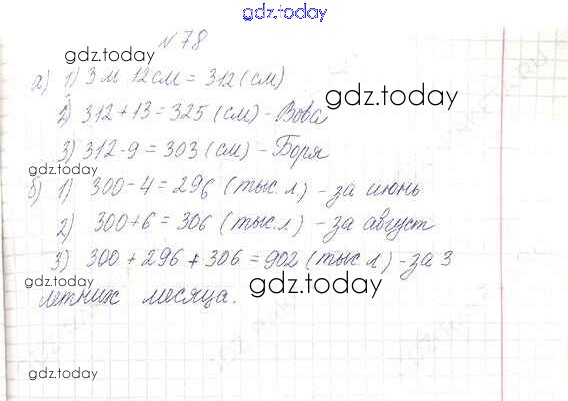 gdz.today
№78
gdz.today
а) 1) 3 м 12 см = 312 (см)
gdz.today
2) 312 + 13 = 325 (см) - Вова
3) 312 - 9 = 303 (см) - Боря
gdz.today
б) 1) 300 - 4 = 296 (тыс. л) - за июнь
2) 300 + 6 = 306 (тыс. л) - за август
3) 300 + 296 + 306 = 902 (тыс. л) - за 3
gdz.today
gdz.today
летних месяца.
gdz.today